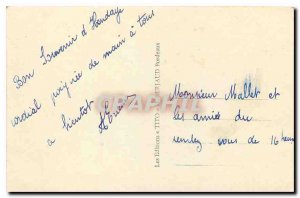 Bon Souvenir d'Hendaye
cordial poignée de main à tous
a bientot
Les Editions « TITO »
Bordeaux
Monsieur Mallet et
les amies du
rendez vous de 16 heures